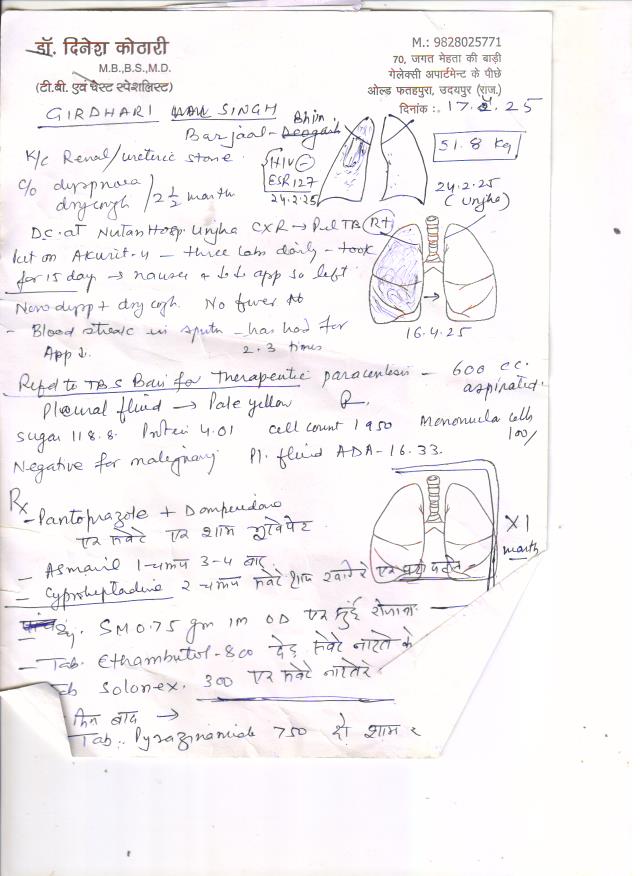 डॉ. दिनेश कोठारी
M.B.,B.S.,M.D.
(टी.बी. एवं चैस्ट स्पेशलिस्ट)
M.: 9828025771
70, जगत मेहता की बाड़ी
गेलेक्सी अपार्टमेन्ट के पीछे
ओल्ड फतहपुरा, उदयपुर (राज.)
दिनांक : 17. .25
GIRDHARI SINGH
Bhim
Barjaal -
51.8 Kg
K/c Renal/ureteric stone.
HIV -
ESR 127
24.2.25
24.2.25
(Unjha)
C/o dyspnoea
dry cough / 2 1/2 month
D.C. at Nutan Hosp. Unjha CXR → Pul TB (Rt)
Put on Akurit-4 - three tabs daily - took
for 15 day → nausea + ↓↓ app so left
Now dysp + dry cgh. No fever
- Blood streak in sputm - has had for
2.3 times
App ↓.
16.4.25
Refd to TBS Bari for Therapeutic paracentesis - 600 cc.
aspirated.
Pleural fluid → Pale yellow
Sugar 118.8. Protein 4.01 cell count 1950 Mononucla cells
100%
Negative for malegnancy. Pl. fluid ADA-16.33.
Rx
- Pantoprazole + Domperidone
एक सवेरे एक शाम
- Asmanil 1-चम्मच 3-4 बार
X 1
month
- Cyproheptadine 2-चम्मच सवेरे शाम
Inj. SM 0.75 gm IM OD एक सुई रोजाना
- Tab. Ethambutol-800 डेढ़ सवेरे नाश्ते के
Solonex. 300 एक सवेरे नाश्ते
दिन बाद →
Tab. Pyrazinamide 750 दो शाम